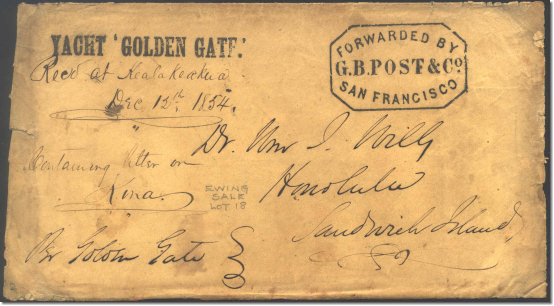 YACHT 'GOLDEN GATE.'
Recd at Kealakeakua
Dec 12th. 1854.
FORWARDED BY
G.B.POST & Co
SAN FRANCISCO
Dr. Wm J. Wills
Honolulu
Sandwich Island
Containing letter on
Kina.
EWING
SALE
LOT 18
Pr Golden Gate